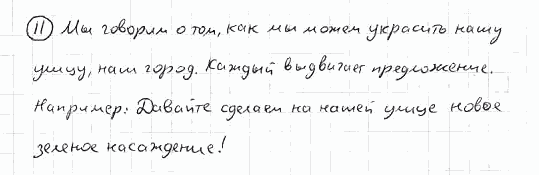 11 Мы говорим о том, как мы можем украсить нашу
улицу, наш город. Каждый выдвигает предложение.
Например: Давайте сделаем на нашей улице новое
зеленое насаждение!